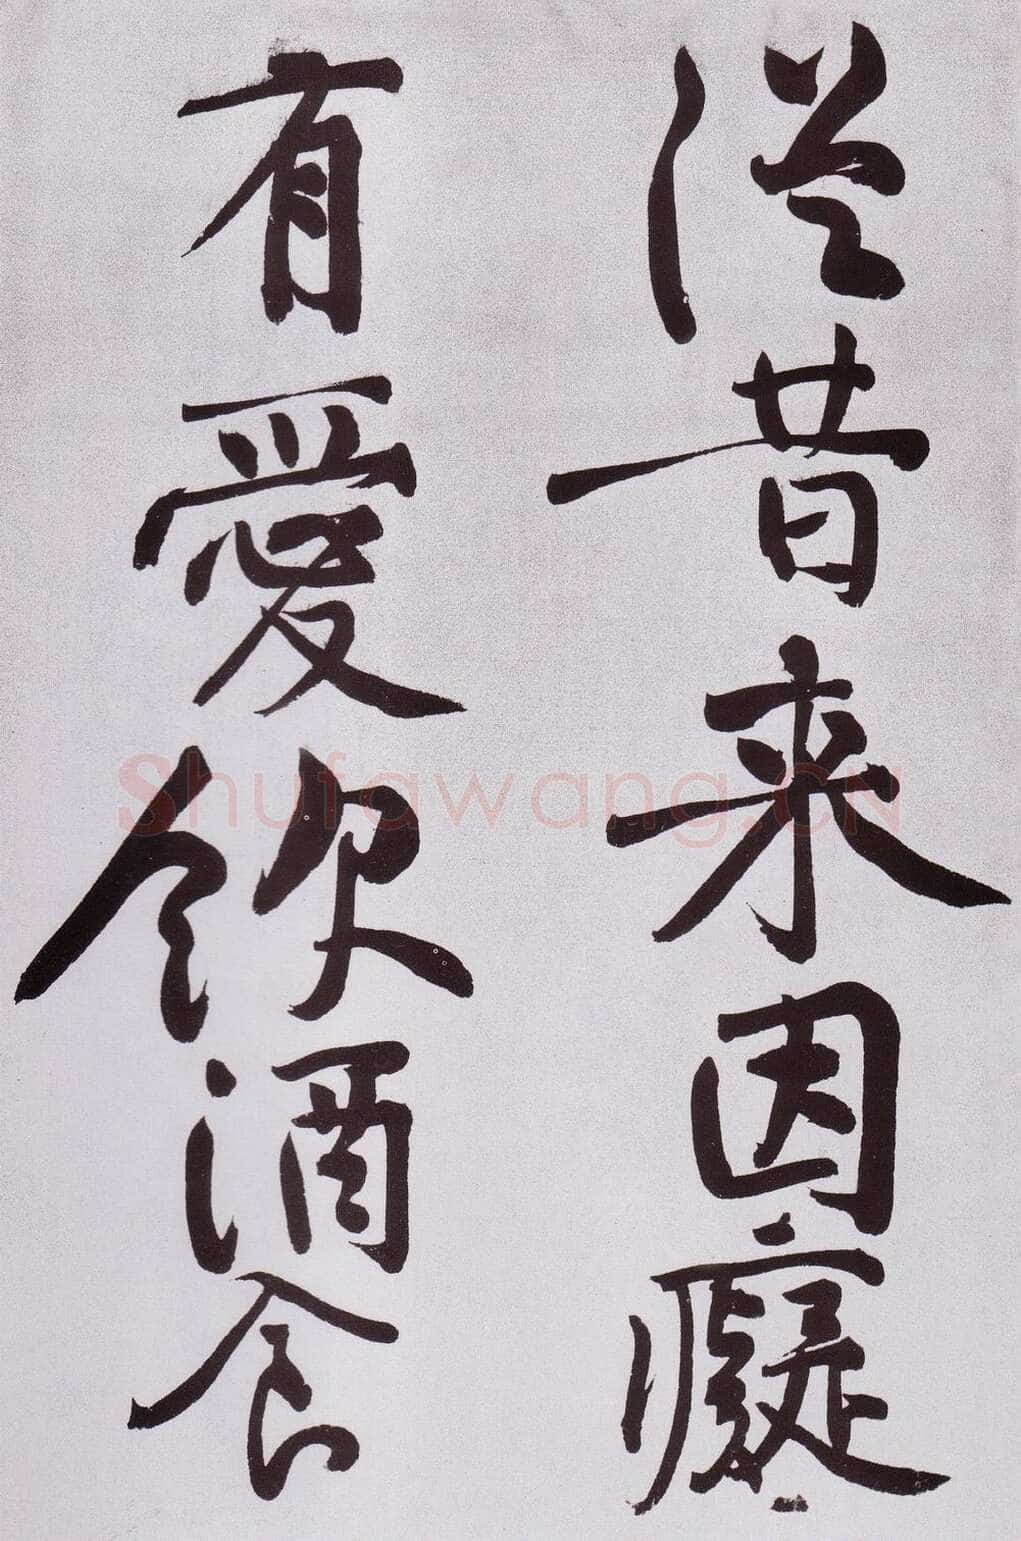 從昔来因癡
有愛飲酒食
Shufawang.CN